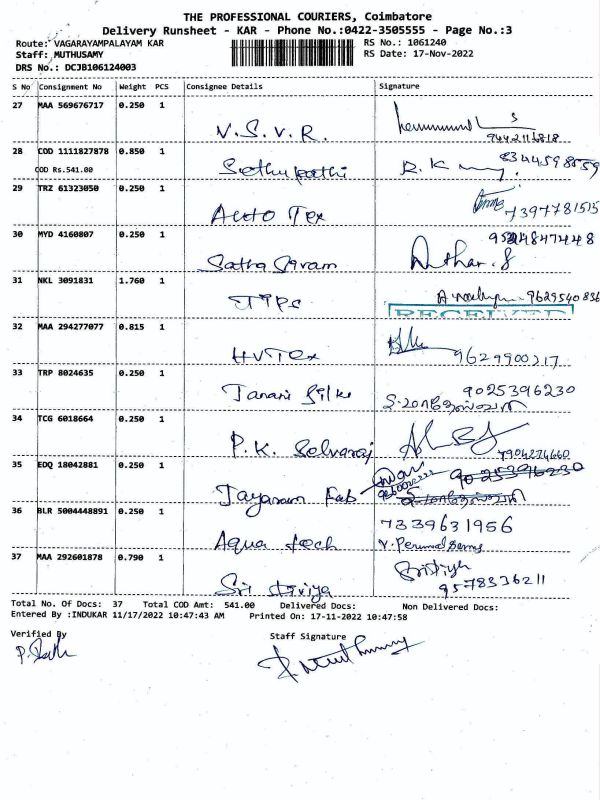 THE PROFESSIONAL COURIERS, Coimbatore
Delivery Runsheet - KAR - Phone No.:0422-3505555 - Page No.:3
Route: VAGARAYAMPALAYAM KAR RS No.: 1061240
Staff: MUTHUSAMY RS Date: 17-Nov-2022
DRS No.: DCJB106124003
S No Consignment No Weight PCS Consignee Details Signature
27 MAA 569676717 0.250 1
N.S.V.R. 9442111818
28 COD 1111827878 0.850 1
COD Rs.541.00 Sathupathi R.K
29 TRZ 61323050 0.250 1
Auto Tex 7397781515
30 MYD 4160807 0.250 1
31 NKL 3091831 1.760 1
9629540836
RECEIVED
32 MAA 294277077 0.815 1
HVTex 9629900217
33 TRP 8024635 0.250 1
Janani Silks 9025396230
34 TCG 6018664 0.250 1
P.K. Selvaraj 7904274660
35 EDQ 18042881 0.250 1
Jayaram Fab 9025396230
36 BLR 5004448891 0.250 1 7339631956
Aqua tech
37 MAA 292601878 0.790 1
Sri 9578336211
Total No. Of Docs: 37 Total COD Amt: 541.00 Delivered Docs: Non Delivered Docs:
Entered By :INDUKAR 11/17/2022 10:47:43 AM Printed On: 17-11-2022 10:47:58
Verified By Staff Signature